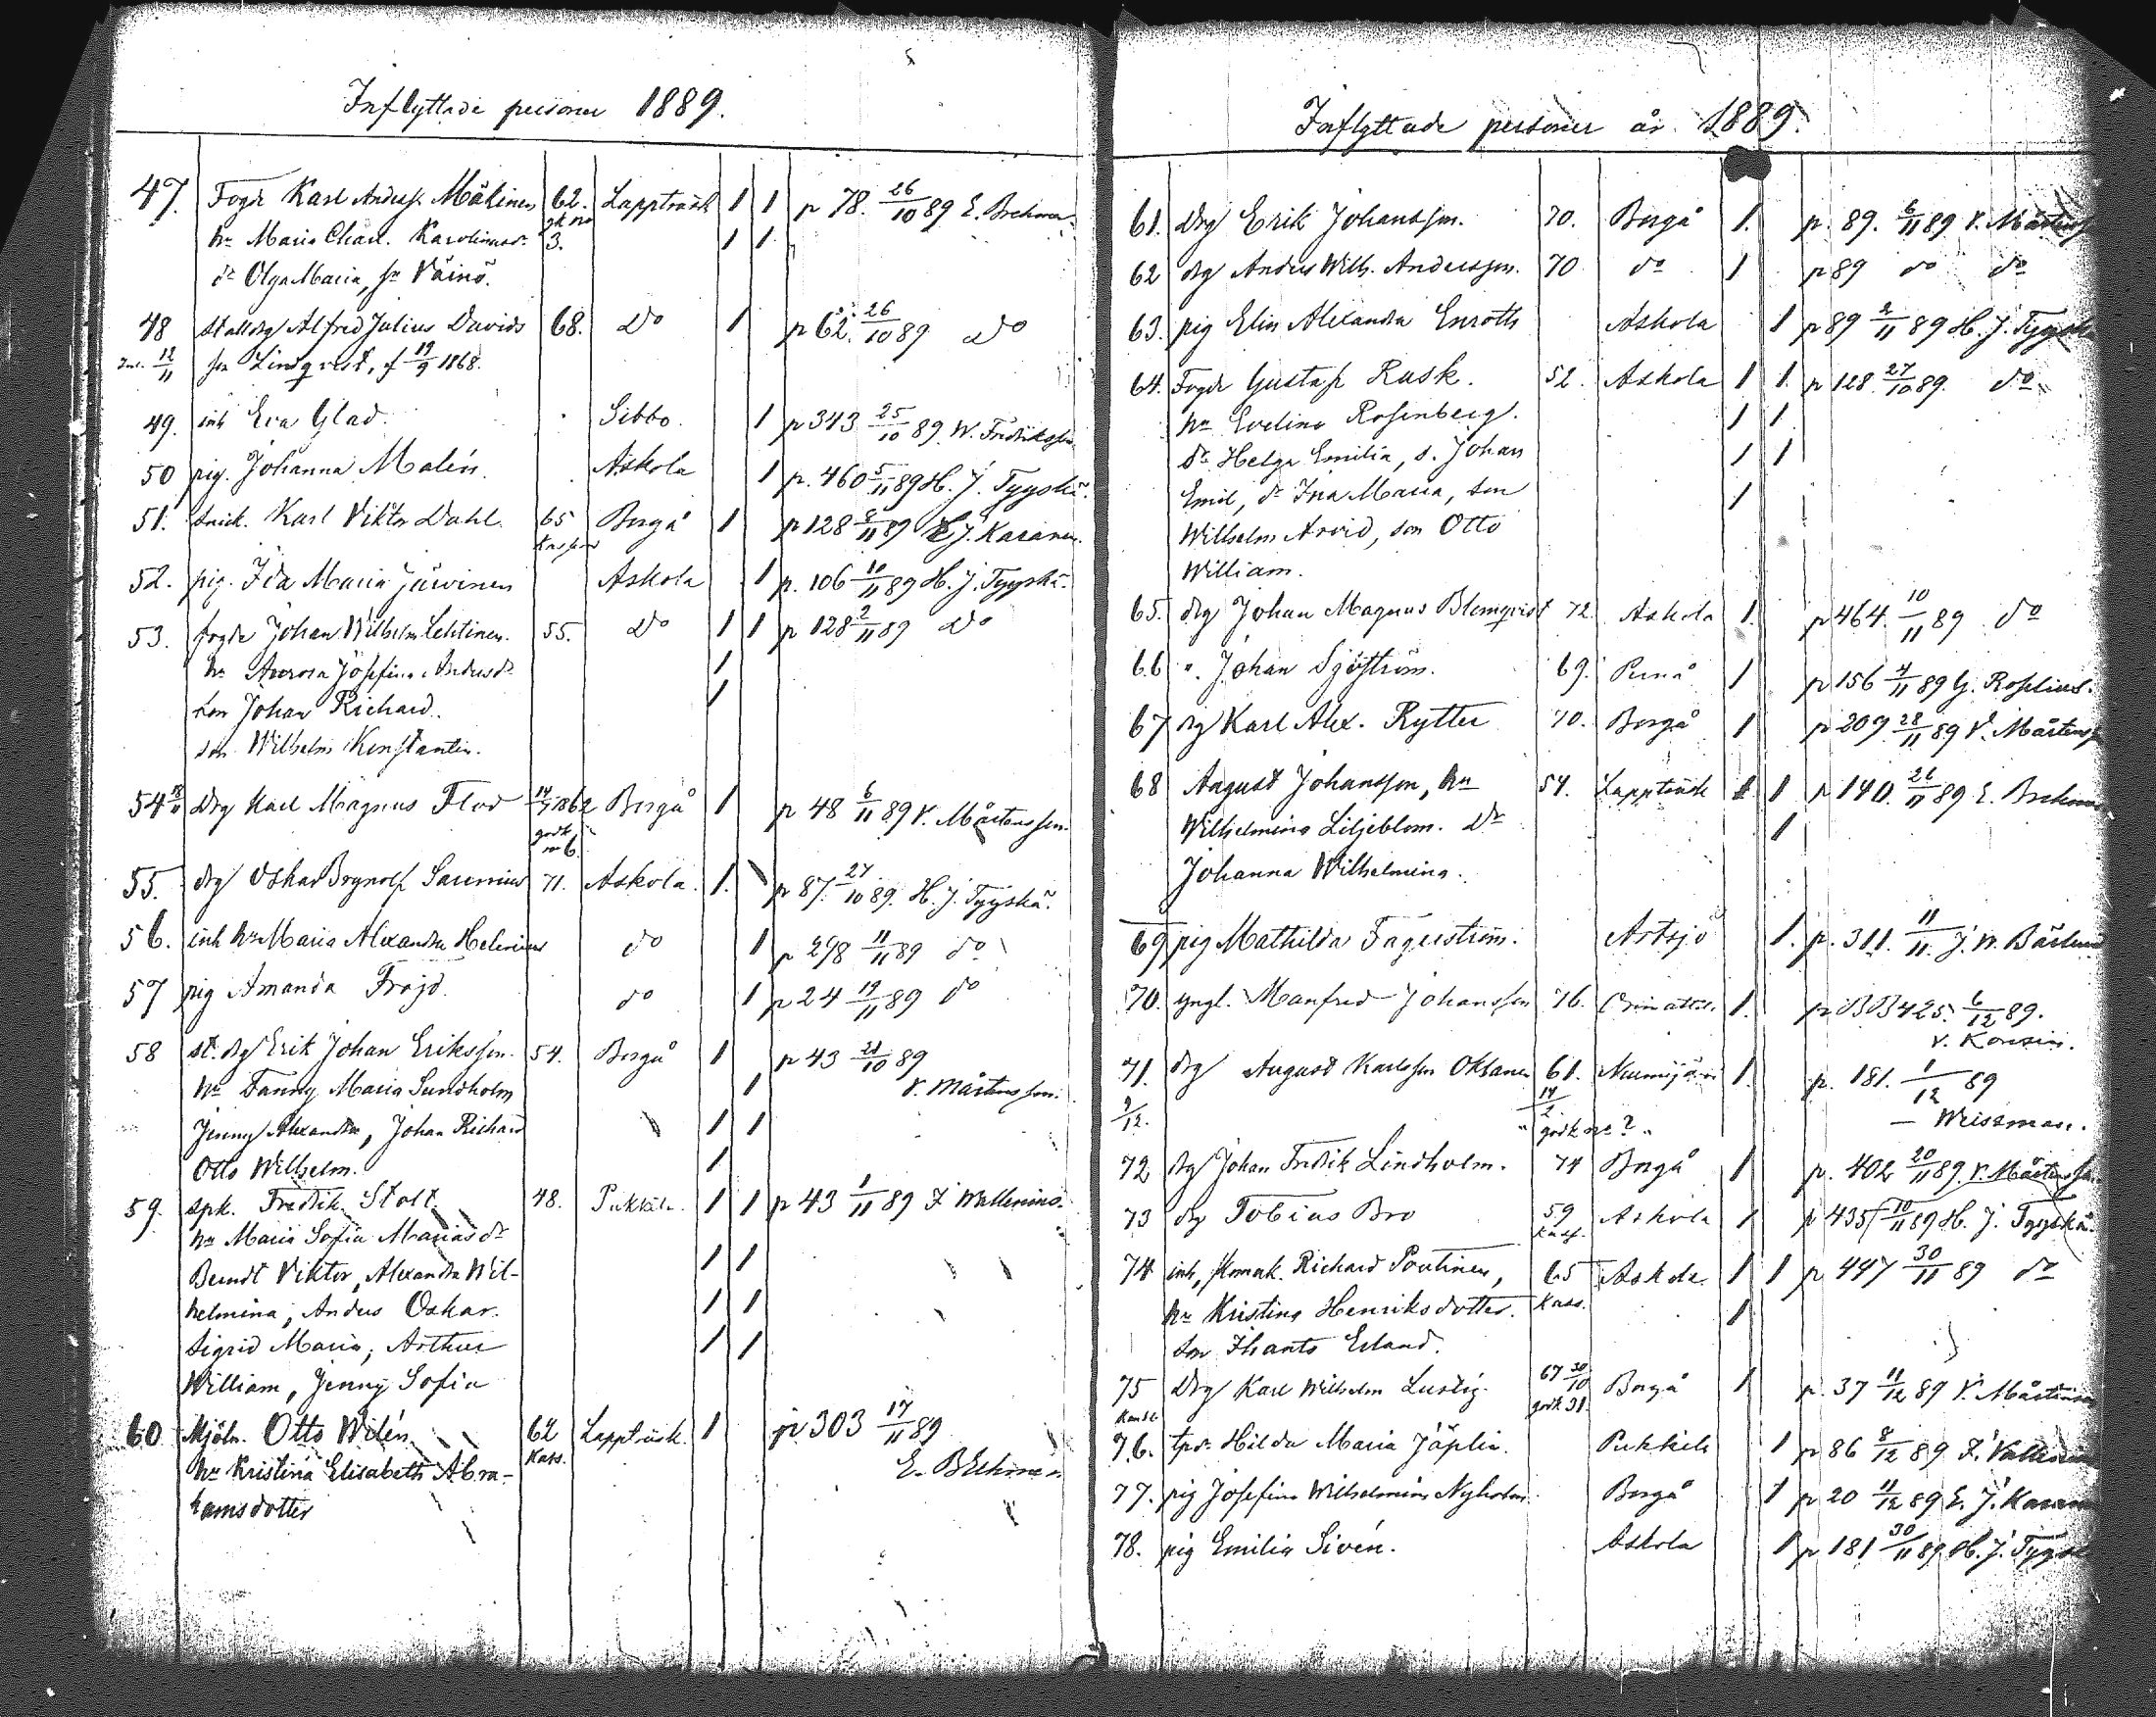 Inflyttade personer 1889.
47. Fogde Karl Andersf. Mäkinen 62. Lappträsk 1 1 p 78. 26/10 89 E. Brehmer.
hu Maria Charl. Karolinasdr. 3. 1 1
dr Olga Maria, sn Väinö.
48 Stalldrg Alfred Julius Davids 68. Do 1 p 62. 26/10 89 Do
12/11 son Lindqvist, f 19/9 1868.
49. inh Eva Glad. Sibbo. 1 p 343 25/10 89 W. Fredriksson
50 pig. Johanna Malén. Askola 1 p. 460 5/11 89 H. J. Tyyskä.
51. Snick. Karl Viktor Dahl. 65 Borgå 1 p 128 8/11 89 E. J. Karanen.
52. pig. Ida Maria Järvinen Askola 1 p. 106 10/11 89 H. J. Tyyskä.
53. fogde Johan Wilhelm Lehtinen. 55. Do 1 1 p 128 2/11 89 Do
hu Aurora Josefina Andersdr 1
son Johan Richard. 1
son Wilhelm Konstantin.
54 18/11 Drg Karl Magnus Flod 14/7 1862 Borgå 1 p 48 6/11 89 V. Mårtensson.
godk no 6.
55. drg Oskar Brynolf Sarenius 71. Askola. 1. p 87. 27/10 89. H. J. Tyyskä.
56. inh hu Maria Alexandra Helenius do 1 p 298 11/11 89 do
57 pig Amanda Fröjd. do 1 p 24 19/11 89 do
58 st. drg Erik Johan Eriksson. 54. Borgå 1 p 43 21/10 89
hu Fanny Maria Sundholm 1 V. Mårtensson.
Jenny Alexandra, Johan Richard 1 1
Otto Wilhelm. 1
59. spk. Fredrik Stolt. 48. Pukkila. 1 1 p 43 1/11 89 F. Wallenius.
hu Maria Sofia Mariasdr
Berndt Viktor, Alexandra Wil- 1 1
helmina, Anders Oskar. 1 1
Sigrid Maria, Arthur 1 1
William, Jenny Sofia
60 Mjöln. Otto Wilén. 62 Lappträsk. 1 p 303 17/11 89
hu Kristina Elisabeth Abra- Kass. E. Brehmer.
hamsdotter
Inflyttade personer år 1889.
61. Drg Erik Johansson. 70. Borgå 1. p. 89. 6/11 89 V. Mårtenss
62 drg Anders Wilh. Andersson. 70 do 1 p 89 do do
63. pig Elin Alexandra Enroth Askola 1 p 89 2/11 89 H. J. Tyysk
64. Fogde Gustaf Rask. 52. Askola 1 1. p 128. 27/10 89. do.
hu Evelina Rosenberg. 1 1
dr Helga Emilia, s. Johan 1 1
Emil, dr Ina Maria, son 1
Wilhelm Arvid, son Otto
William.
65. drg Johan Magnus Blomqvist 72. Askola 1. p 464 10/11 89 do
66 ". Johan Sjöström. 69. Pernå 1 p 156 4/11 89 G. Roselius.
67 drg Karl Alex. Rytter 70. Borgå 1 p 207 28/11 89 V. Mårtens
68 August Johansson, hu 54. Lappträsk 1 1 p 140. 26/11 89 E. Brehmer
Wilhelmina Liljeblom. Dr 1
Johanna Wilhelmina.
69 pig Mathilda Fagerström. Artsjö 1. p. 311. 11/11. J. W. Bärlund
70. yngl. Manfred Johansson 76. Orimattil. 1. p 425. 6/12 89.
71. drg August Karlsson Oksanen 61. Nurmijärvi 1. p. 181. 1/12 89
9/12. 14/2 — Weissman.
" godk no ? "
72 drg Johan Fredrik Lindholm. 74 Borgå 1 p. 402 20/11 89. V. Mårtensson
73 drg Tobias Bro 59 Askola 1 p 435 10/11 89 H. J. Tyyskä.
74 inh, Richard Poutinen, 65 Askola. 1 1 p 447 30/11 89 do
hu Kristina Henriksdotter. Kass. 1
son Erland.
75 Drg Karl Wilhelm Lustig. 67 30/10 Borgå 1 p. 37 11/12 89 V. Mårtensson
godk 31.
76. Hilda Maria Jäplin. Pukkila 1 p 86 8/12 89 F. Wallenius
77. pig Josefina Wilhelmina Nyholm. Borgå 1 p 20 11/12 89 E. J. Karanen
78. pig Emilia Sivén. Askola 1 p 181 30/11 89 H. J. Tyysk